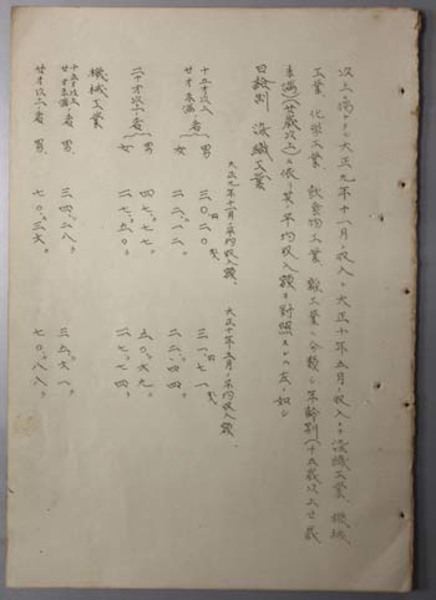 次上ノ揭ケタル大正九年十一月ノ收入ト大正十年五月ノ收入トヲ染織工業、機械
工業、化學工業、飲食物工業、數工業ニ分類シ年齡別(十五歳以上廿歳
未滿)(廿歳以上)ニ依リ其ノ平均收入額ヲ對照スレハ左ノ如シ
染織工業
大正九年十一月ノ平均收入額、 大正十年五月ノ平均收入額、
十五才以上廿才未滿ノ者 男 三〇.二〇 三一.七一
女 二二.一二 二二.四四
二十才以上ノ者 男 四七.七七。 五〇.六九
女 二七.五〇。 二七.七四
機械工業
十五才以上廿才未滿ノ者 男、 三四.二八。 三五.六一。
廿才以上ノ者 男、 七〇.三六。 七〇.八八。